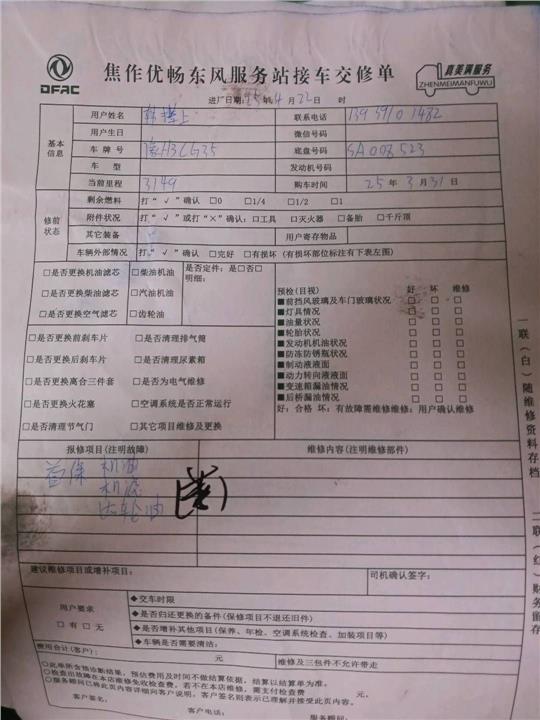 DFAC
焦作优畅东风服务站接车交修单
真美满服务
ZHENMEIMANFUWU
进厂日期:25年4月22日 时
基本信息
用户姓名 联系电话 13939101482
用户生日 微信号码
车牌号 豫H3CG35 底盘号码 SA008523
车型 发动机号码
当前里程 3149 购车时间 25年3月31日
修前状态
剩余燃料 打“√”确认 □0 □1/4 □1/2 □1
附件状况 打“√”或打“×”确认:□工具 □灭火器 □备胎 □千斤顶
其它装备 用户寄存物品
车辆外部情况 打“√”确认 □完好 □有损坏 (有损坏部位标注有下表左图)
□是否更换机油滤芯 □柴油机油 是否定件:是□否□
明细:
□是否更换柴油滤芯 □汽油机油
□是否更换空气滤芯 □齿轮油
预检(目视) 好 坏 维修
■前挡风玻璃及车门玻璃状况 □ □ □
■灯具情况 □ □ □
■油量状况 □ □ □
■轮胎状况 □ □ □
■发动机机油状况 □ □ □
■防冻防锈瓶状况 □ □ □
■制动液液面 □ □ □
■动力转向液液面 □ □ □
■变速箱漏油情况 □ □ □
■后桥漏油情况 □ □ □
好:合格 坏:有故障需维修维修:用户确认维修
□是否更换前刹车片 □是否清理排气筒
□是否更换后刹车片 □是否清理尿素箱
□是否更换离合三件套 □是否为电气维修
□是否更换火花塞 □空调系统是否正常运行
□是否清理节气门 □其它项目维修及更换
报修项目(注明故障) 维修内容(注明维修部件)
首保 机油
机滤
齿轮油
建议维修项目或增补项目: 司机确认签字:
用户要求
□有 □无
◆交车时限
◆是否归还更换的备件(保修项目不退还旧件)
◆是否增补其他项目(保养、年检、空调系统检查、加装项目等)
◆车辆是否需要清洁:
费用合计(客户): 元 维修及三包件不允许带走
○此单所含预诊断结果,预估费用及时间不做结算依据,结算以结算单为准。
○检查出故障在本店维修免收检查费,若不在本店维修,需支付检查费 元
○服务顾问已将此页内容详细向客户说明,客户签名则表示已理解并接受此页内容。
客户签名: 客户电话: 服务顾问:
一联(白)随维修资料存档
二联(红)财务留存